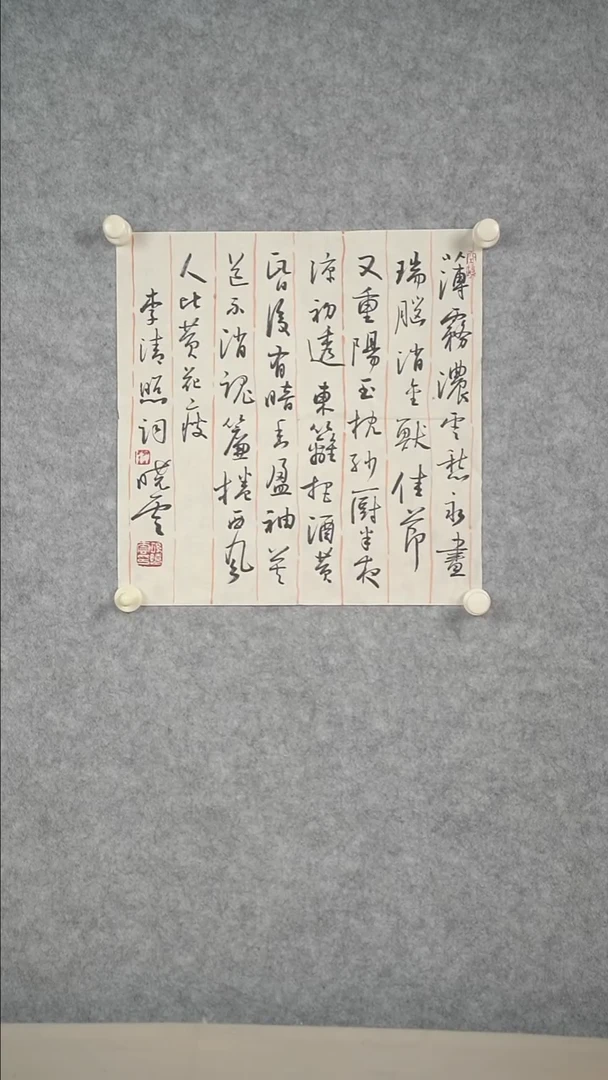 薄霧濃雲愁永晝
瑞腦消金獸佳節
又重陽玉枕紗廚半夜
涼初透東籬把酒黃
昏後有暗香盈袖莫
道不消魂簾捲西風
人比黃花瘦
李清照詞 曉雲